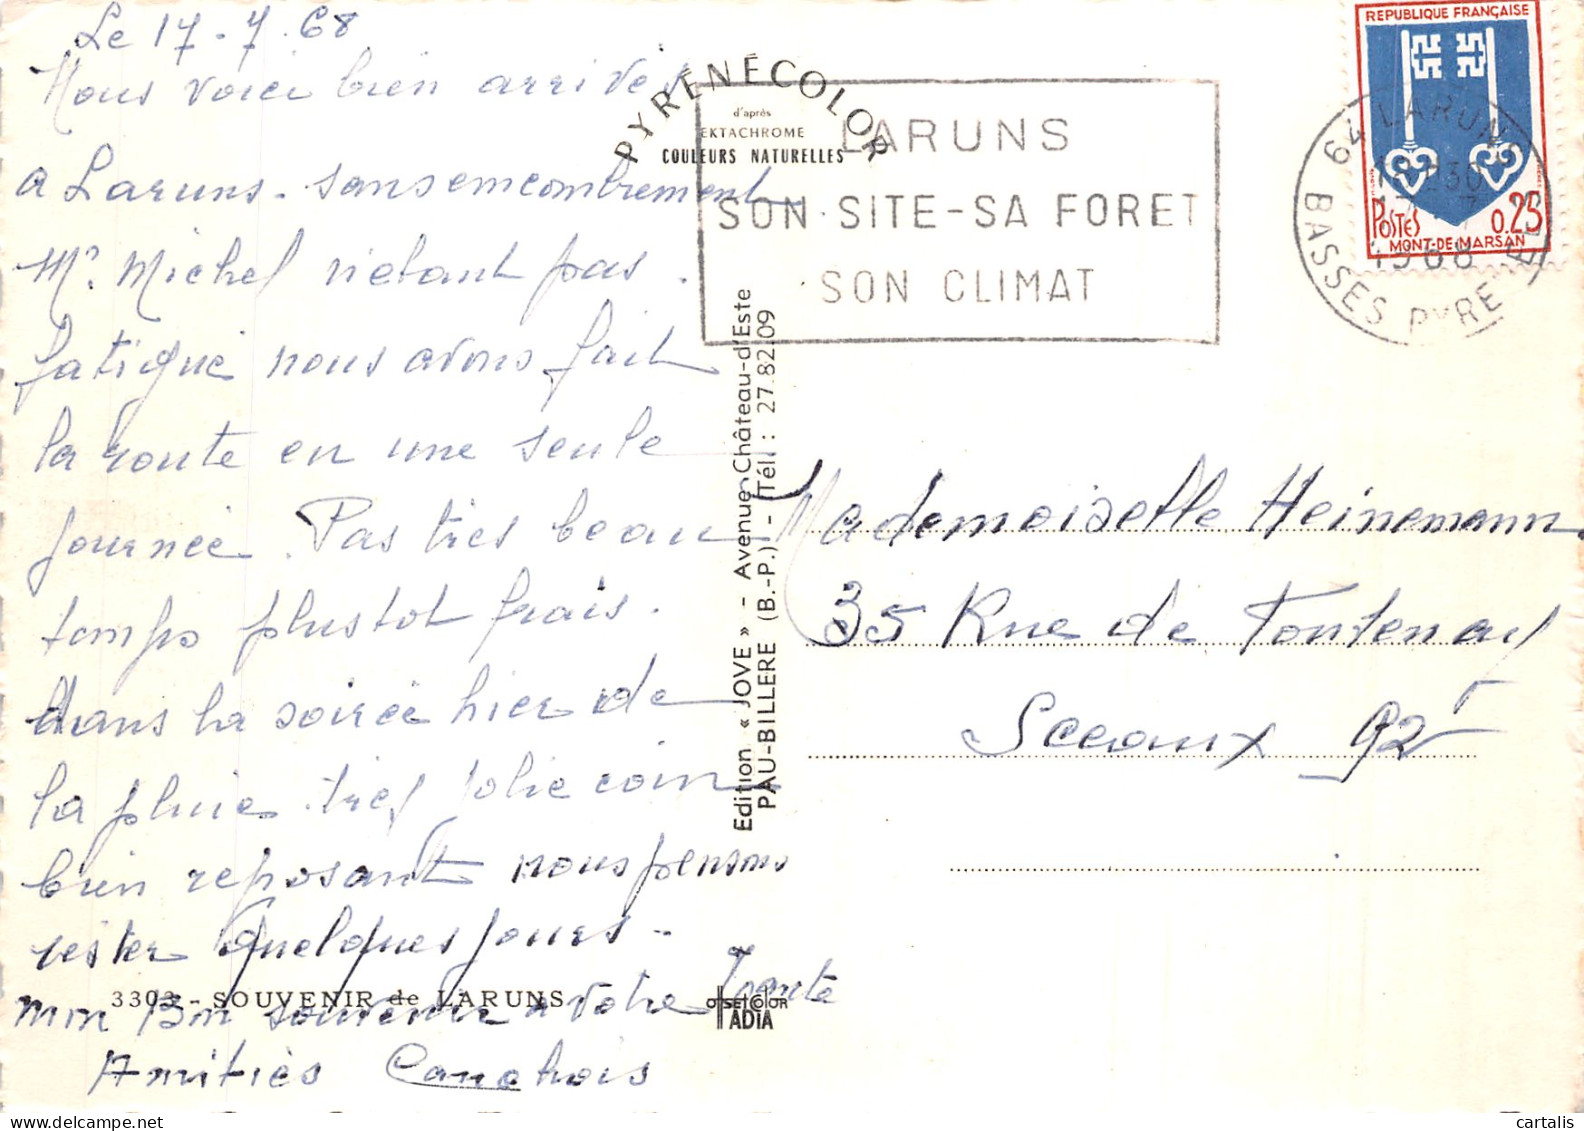 Le 17-7-68
Nous voici bien arrivés
a Laruns. sans emcombrement
Mr. Michel n'etant pas.
fatigué nous avons fait
la route en une seule
journée. Pas très beau
temps plustot frais.
dans la soirée hier de
la pluie. très jolie coin
bien reposant nous pensons
rester quelques jours.
mon Bon souvenir a votre
Amitiés
PYRÉNÉCOLOR
d'après
EKTACHROME
COULEURS NATURELLES
LARUNS
SON SITE-SA FORET
SON CLIMAT
REPUBLIQUE FRANÇAISE
POSTES 0.25
MONT-DE-MARSAN
64 LARUNS
1968
BASSES PYRE
Edition « JOVE » - Avenue Château-d'Este
PAU-BILLERE (B.-P.) - Tél. : 27.82.09
Mademoiselle Heinemann
35 Rue de Fontenay
Sceaux 92
3303 - SOUVENIR de LARUNS
OFFSET COLOR
ADIA
cartalis